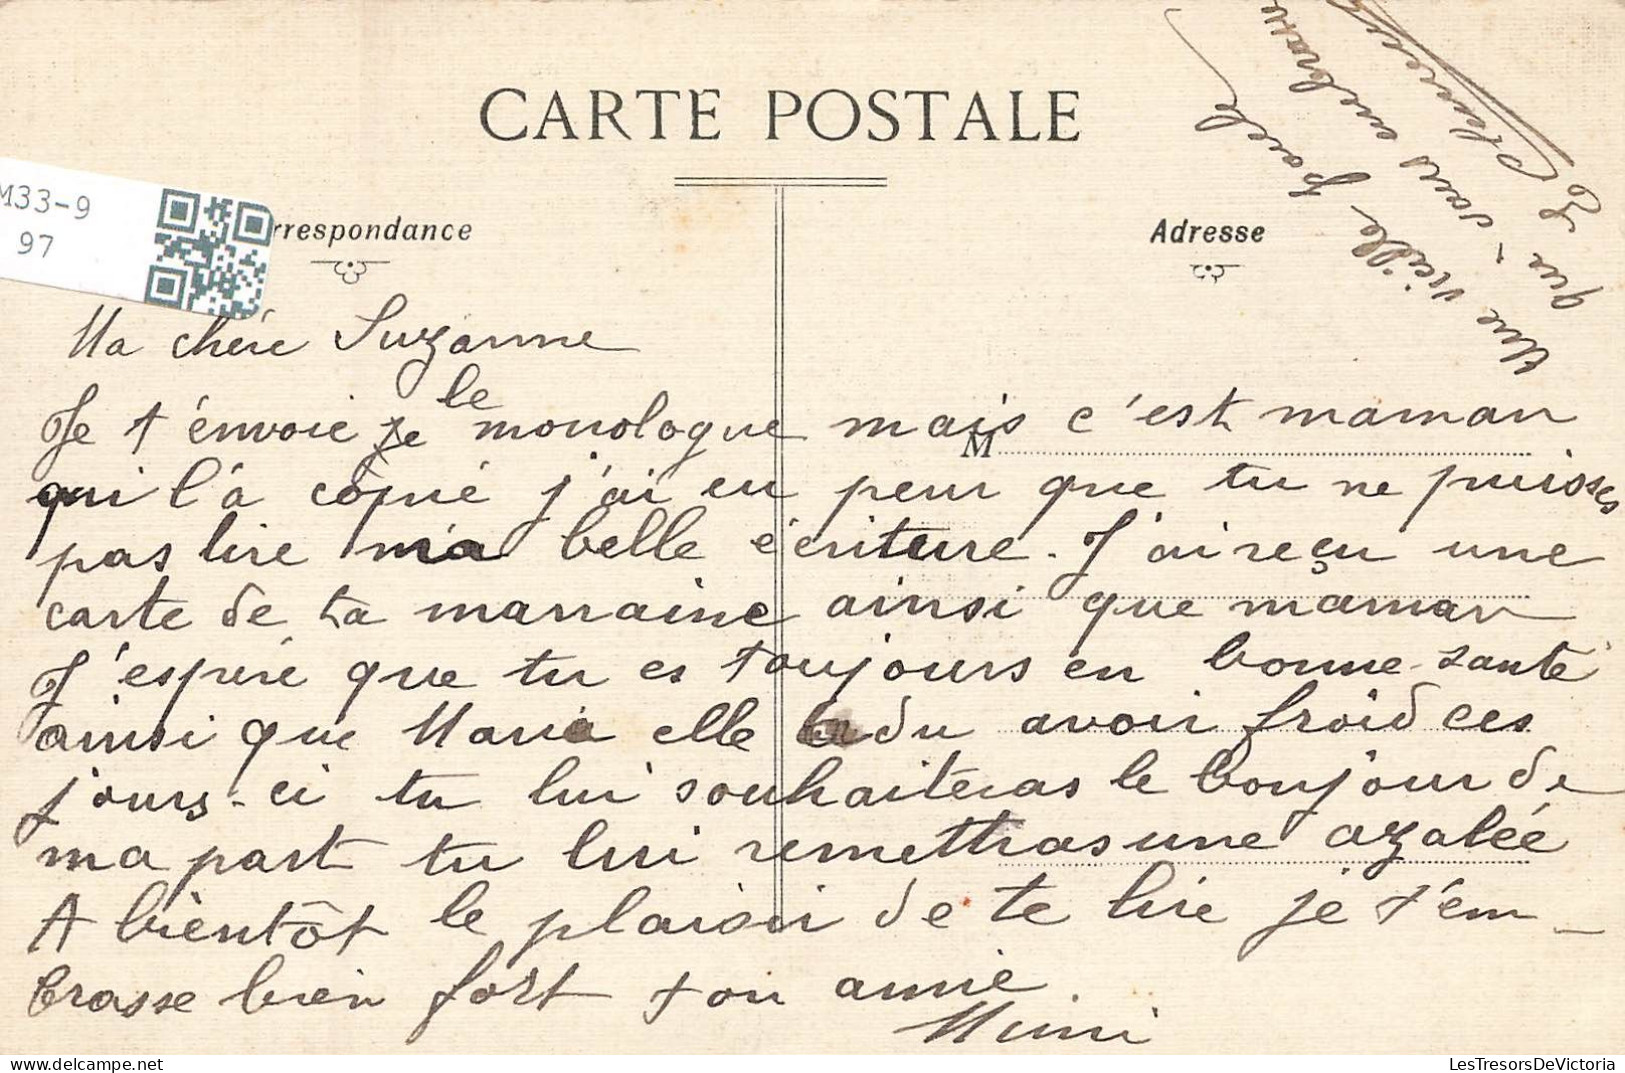 CARTE POSTALE
M33-9
97
rrespondance
Adresse
M
Une vieille
vous embrasse
que
Ma chére Suzanne
Je t'envoie je le monologue mais c'est maman
qui l'a copié j'ai eu peur que tu ne puisses
pas lire ma belle écriture. J'ai reçu une
carte de ta marraine ainsi que maman
J'espére que tu es toujours en bonne santé
ainsi que Maria elle a du avoir froid ces
jours-ci tu lui souhaiteras le bonjour de
ma part tu lui remettras une azalée
A bientôt le plaisir de te lire je t'em-
brasse bien fort ton amie
Mimi
LesTresorsDeVictoria.com